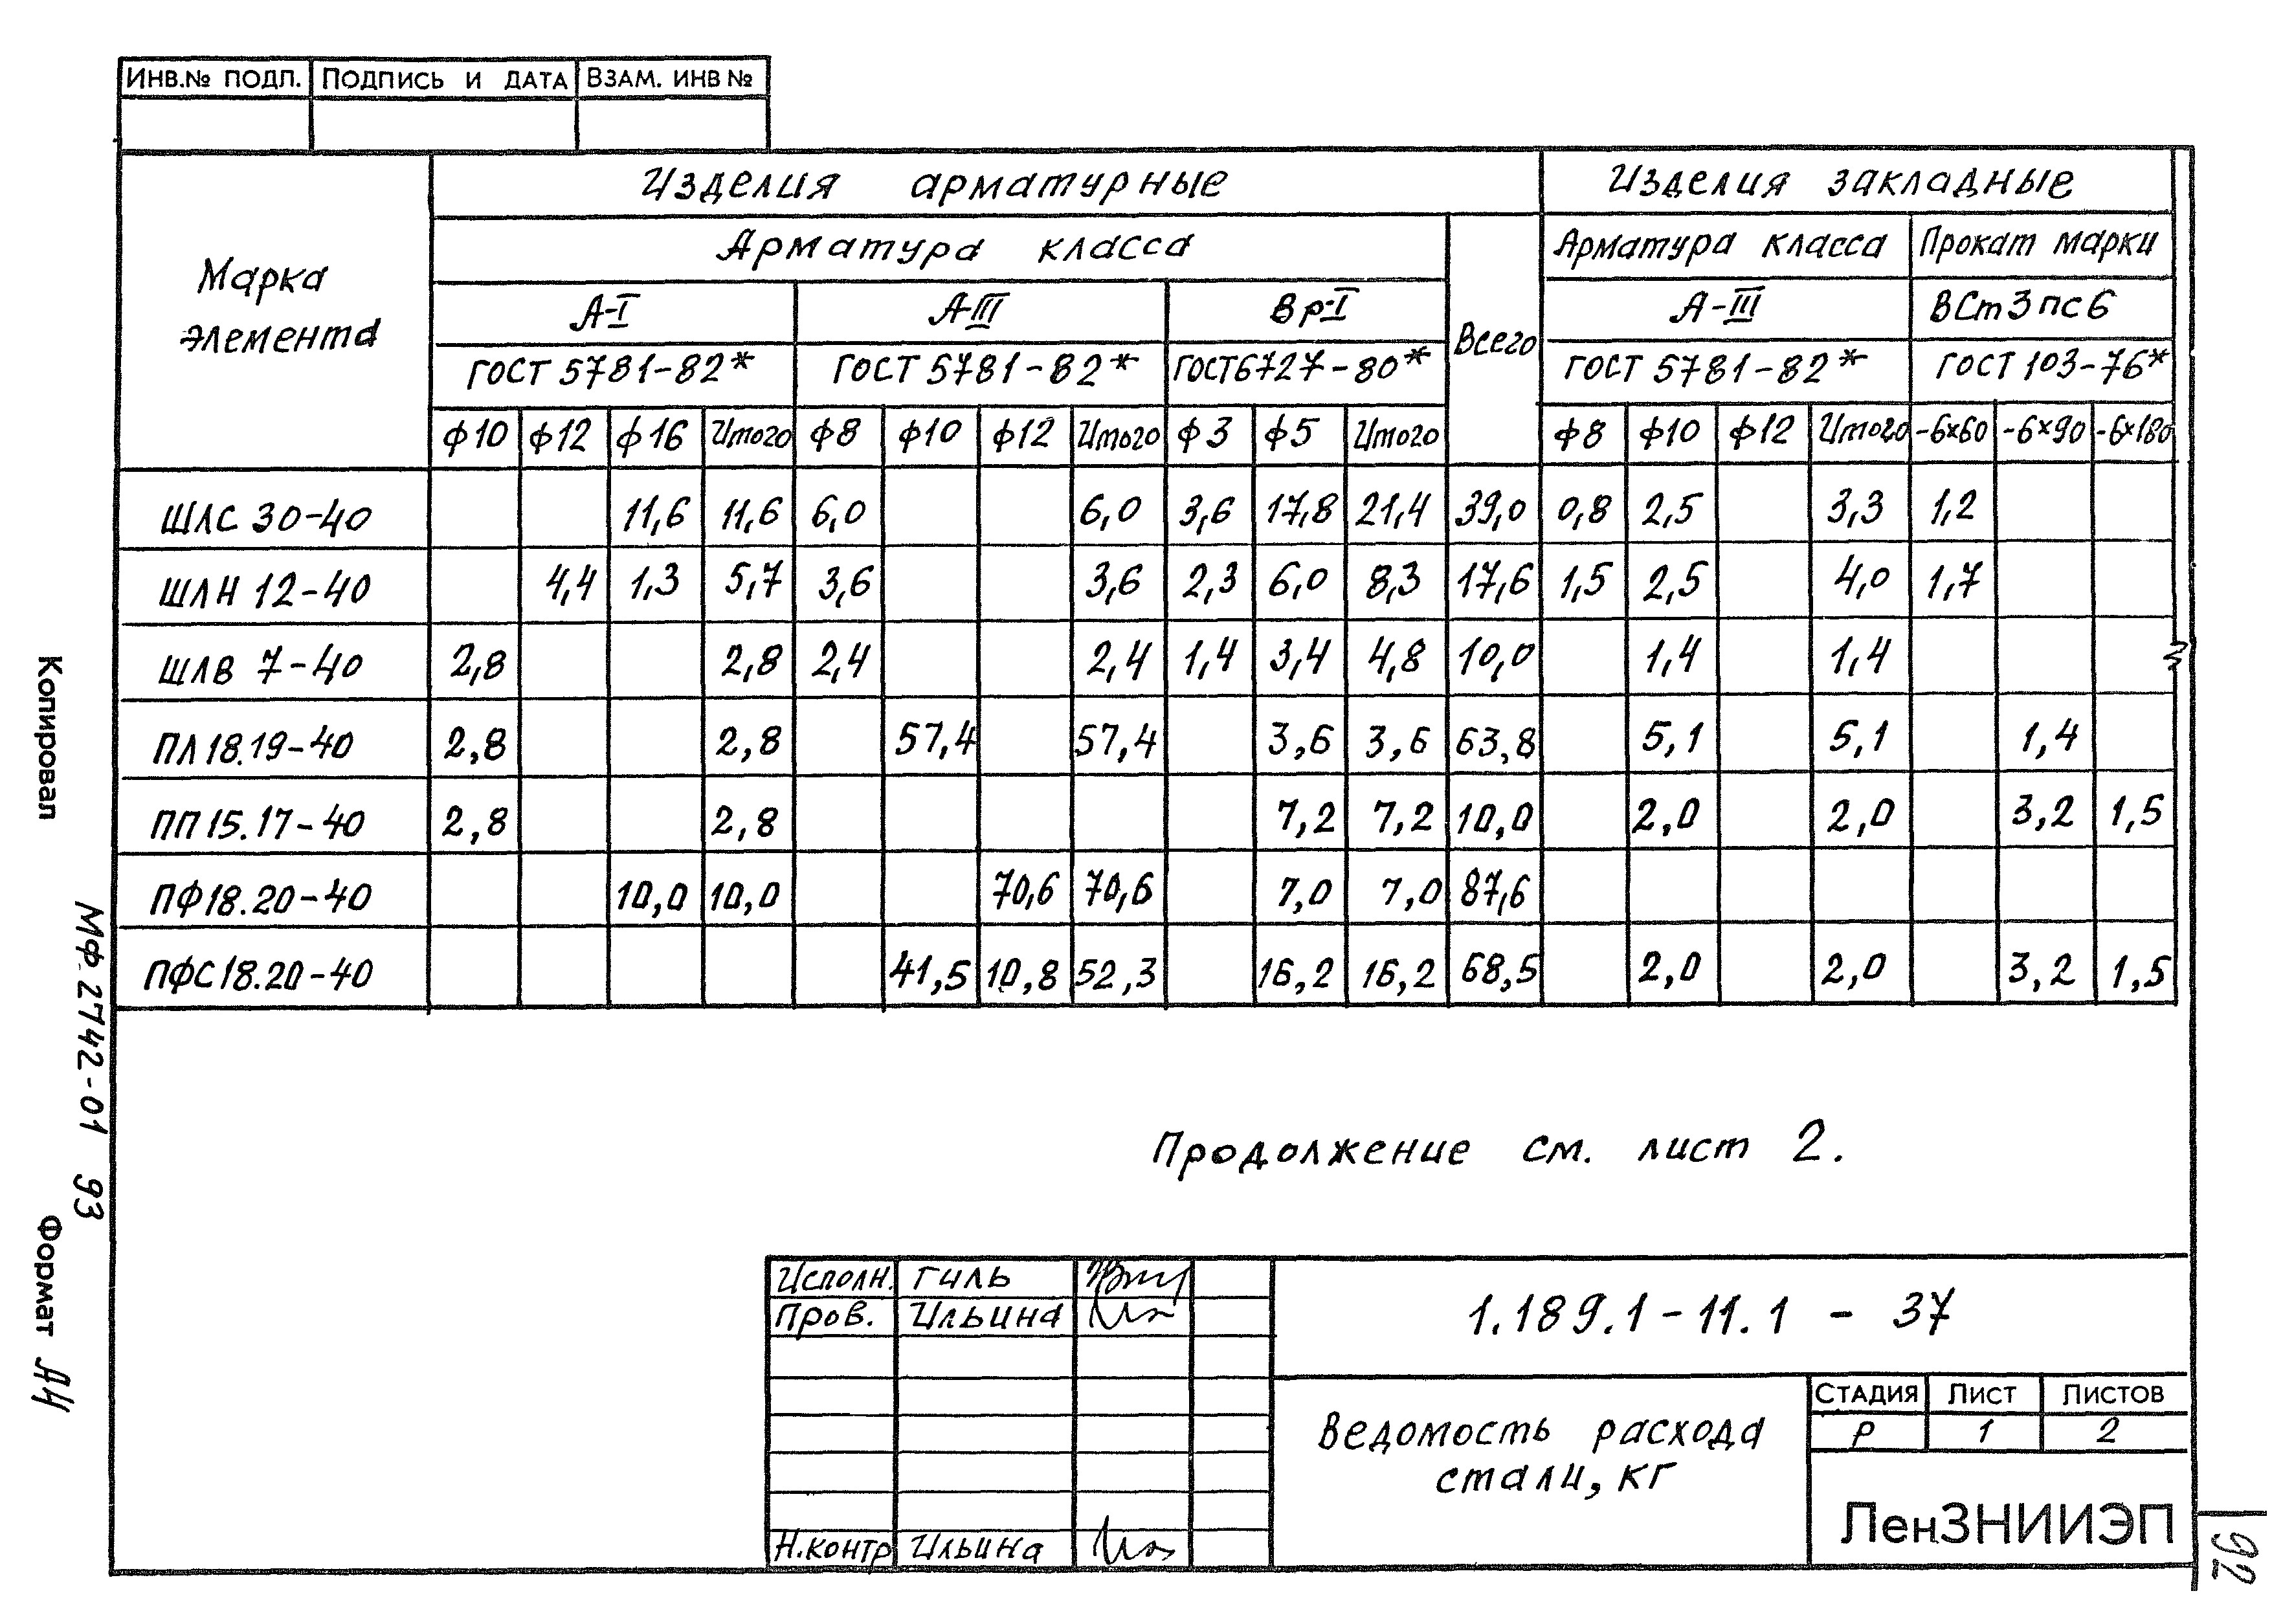 Инв.№ подл. Подпись и дата Взам. инв №
Марка элемента Изделия арматурные Изделия закладные
Арматура класса Всего Арматура класса Прокат марки
А-I А-III Вр-I А-III ВСт3пс6
ГОСТ 5781-82* ГОСТ 5781-82* ГОСТ6727-80* ГОСТ 5781-82* ГОСТ 103-76*
ф10 ф12 ф16 Итого ф8 ф10 ф12 Итого ф3 ф5 Итого ф8 ф10 ф12 Итого -6×60 -6×90 -6×180
ШЛС 30-40 11,6 11,6 6,0 6,0 3,6 17,8 21,4 39,0 0,8 2,5 3,3 1,2
ШЛН 12-40 4,4 1,3 5,7 3,6 3,6 2,3 6,0 8,3 17,6 1,5 2,5 4,0 1,7
ШЛВ 7-40 2,8 2,8 2,4 2,4 1,4 3,4 4,8 10,0 1,4 1,4
ПЛ18.19-40 2,8 2,8 57,4 57,4 3,6 3,6 63,8 5,1 5,1 1,4
ПП15.17-40 2,8 2,8 7,2 7,2 10,0 2,0 2,0 3,2 1,5
ПФ18.20-40 10,0 10,0 70,6 70,6 7,0 7,0 87,6
ПФС18.20-40 41,5 10,8 52,3 16,2 16,2 68,5 2,0 2,0 3,2 1,5
Продолжение см. лист 2.
Исполн. Гиль
Пров. Ильина
Н.контр Ильина
1.189.1-11.1 - 37
Ведомость расхода
стали, кг
Стадия Лист Листов
Р 1 2
ЛенЗНИИЭП
Копировал
МФ.2742-01 93
Формат А4
92